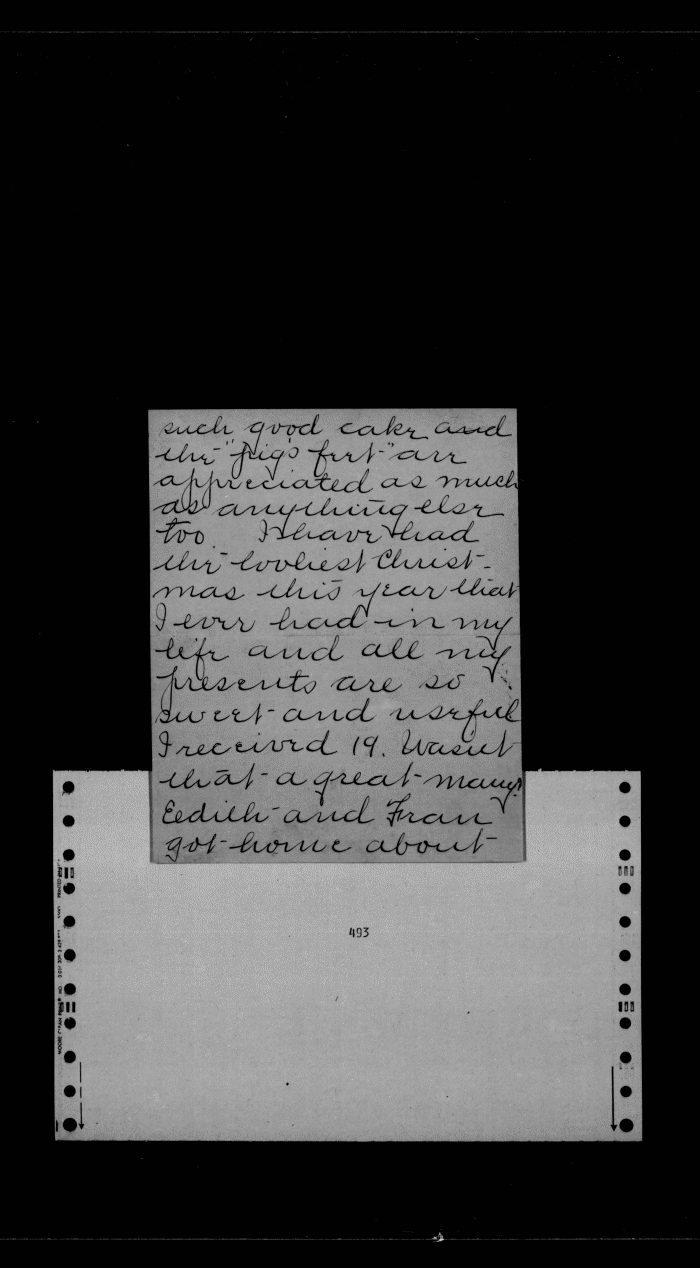 such good cake and
the "pig's feet" are
appreciated as much
as anything else
too. I have had
the lovliest Christ-
mas this year that
I ever had in my
life and all my
presents are so
sweet and useful
I received 19. Wasn't
that a great many?
Eedith and Fran
got home about
493